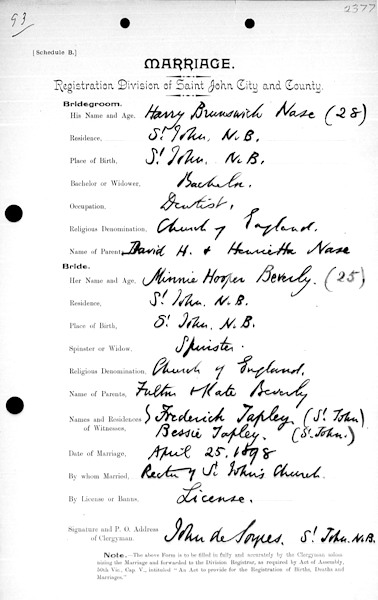 93
2377
[Schedule B.]
MARRIAGE.
Registration Division of Saint John City and County.
Bridegroom.
His Name and Age, Harry Brunswick Nase (28)
Residence, St. John, N.B.
Place of Birth, St. John, N.B.
Bachelor or Widower, Bachelor.
Occupation, Dentist.
Religious Denomination, Church of England.
Name of Parents, David H. & Henrietta Nase
Bride.
Her Name and Age, Minnie Hooper Beverly. (25)
Residence, St. John, N.B.
Place of Birth, St. John, N.B.
Spinster or Widow, Spinster.
Religious Denomination, Church of England.
Name of Parents, & Kate Beverly
Names and Residences Frederick Tapley (St. John)
of Witnesses, Bessie Tapley. (St. John.)
Date of Marriage, April 25, 1898
By whom Married, Rector of St. John's Church.
By License or Banns, License.
Signature and P. O. Address
of Clergyman. John de Soyres, St. John, N.B.
Note.—The above Form is to be filled in fully and accurately by the Clergyman solem-
nizing the Marriage and forwarded to the Division Registrar, as required by Act of Assembly,
50th Vic., Cap. V., intituled "An Act to provide for the Registration of Births, Deaths and
Marriages."